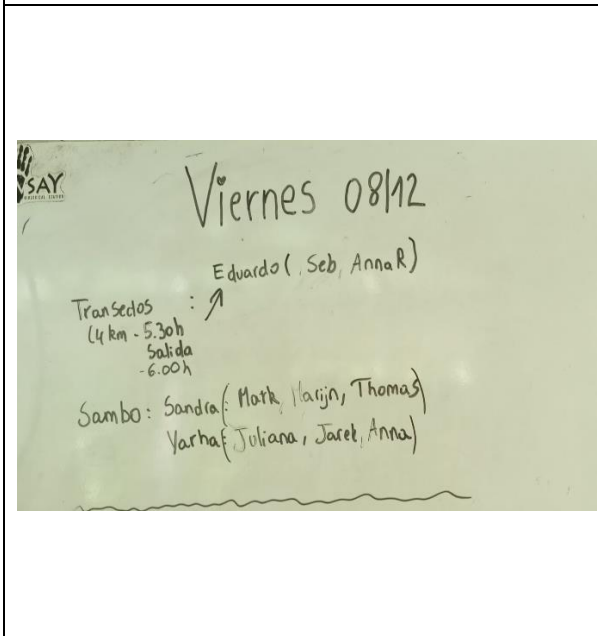 SAY
Viernes 08/12
Eduardo (, Seb, Anna R)
Transectos :
(4 km - 5.30h
Salida
- 6.00h
Sambo: Sandra (: Mark, Marijn, Thomas)
Yarha (: Juliana, Jarek, Anna)